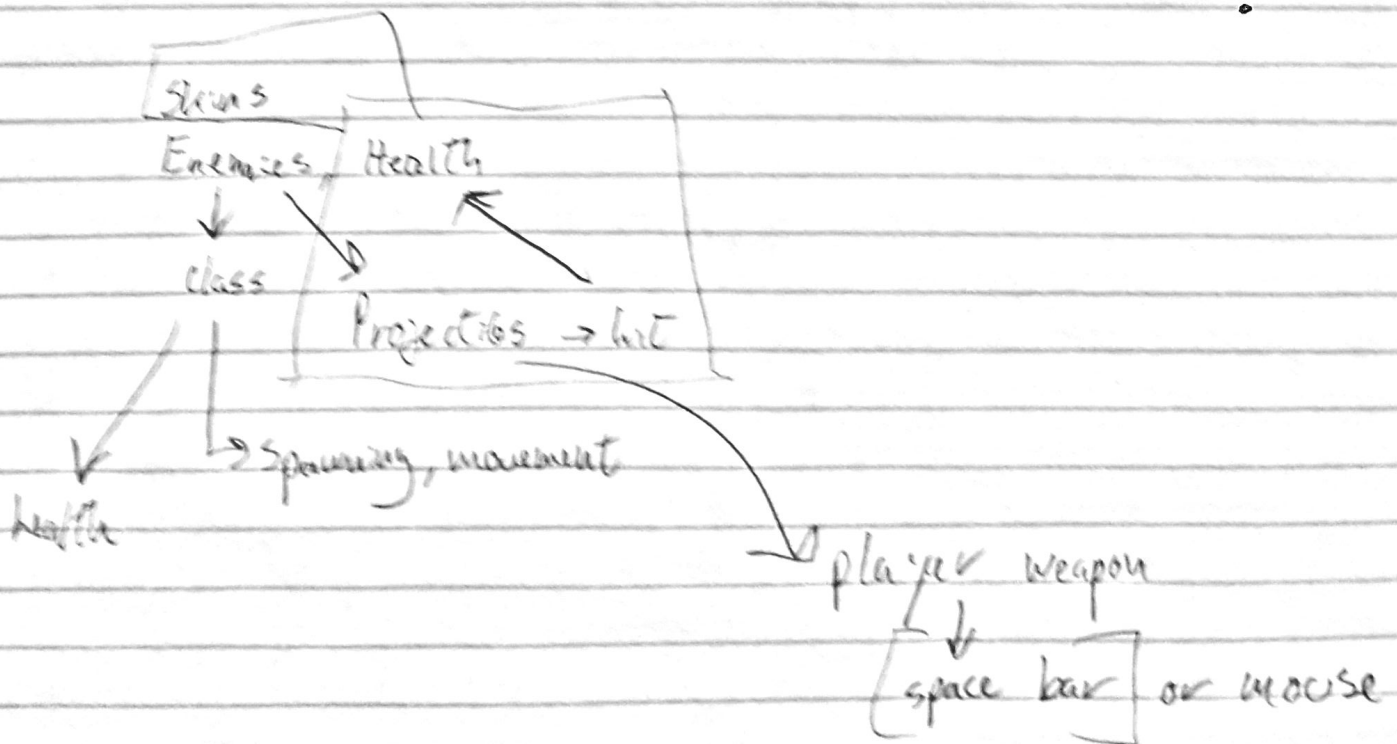 Skins
Enemies Health
class
Projectiles → hit
↳ Spawning, movement
health
player weapon
[space bar] or mouse